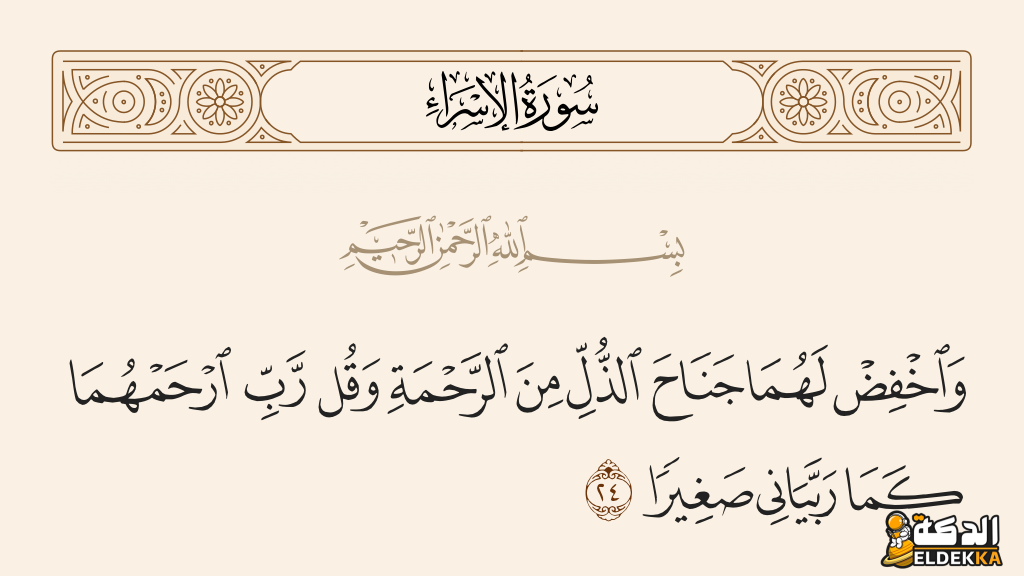 سُورَةُ الإِسْرَاءِ
بِسْمِ ٱللَّهِ ٱلرَّحْمَٰنِ ٱلرَّحِيمِ
وَٱخْفِضْ لَهُمَا جَنَاحَ ٱلذُّلِّ مِنَ ٱلرَّحْمَةِ وَقُل رَّبِّ ٱرْحَمْهُمَا
كَمَا رَبَّيَانِى صَغِيرًا ٢٤
الدكة
ELDEKKA